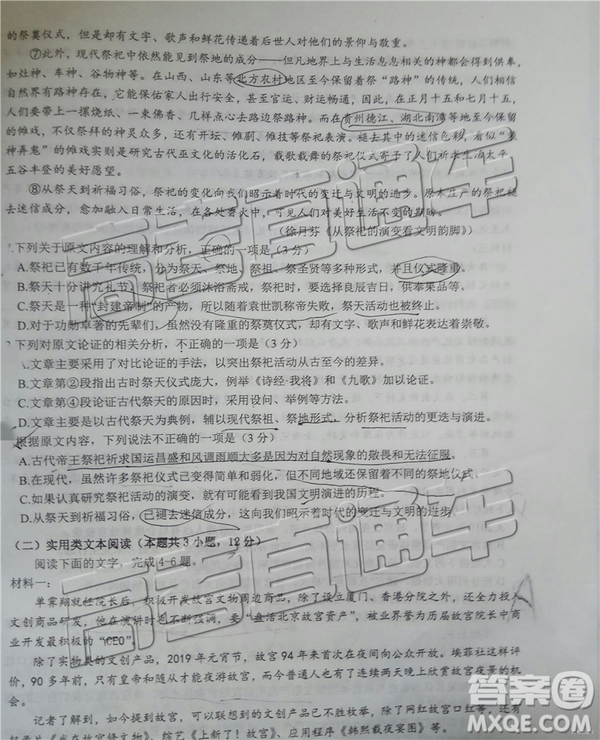 的祭奠仪式，但是却有文字、歌声和鲜花传递着后世人对他们的景仰与敬重。
⑦此外，现代祭祀中依然能见到祭地的成分——但凡地界上与生活息息相关的神都会得到供奉，
如灶神、车神、谷物神等。在山西、山东等北方农村地区至今保留着祭“路神”的传统，人们相信
自然界有路神存在，它能保佑家人出行安全，甚至官运、财运畅通，因此，在正月十五和七月十五，
人们要带上一摞烧纸、一束佛香、几样点心于路边祭路神。而在贵州德江、湖北南漳等地至今保留
的傩戏，不仅祭拜的神灵众多，还有开坛、傩剧、傩技等祭祀内容。褪去其中的迷信色彩，看似“装
神弄鬼”的傩戏实则是研究古代巫文化的活化石，载歌载舞的祭祀仪式寄予了人们祈求生活太平、
五谷丰登的美好愿望。
⑧从祭天到祈福习俗，祭祀的变化向我们昭示着时代的变迁与文明的进步。原本庄严的祭祀褪
去迷信成分，愈加融入日常生活，在各处薪火中，可见人们对美好生活不变的期盼。
（徐月芬《从祭祀的演变看文明韵脚》）
下列关于原文内容的理解和分析，正确的一项是（3 分）
A.祭祀已有数千年传统，分为祭天、祭地、祭祖、祭宗、祭神等多种形式，并且仪式隆重。
B.祭天十分讲究礼节，祭祀者必须沐浴斋戒，祭祀时，要选择良辰吉日，供奉果品等。
C.祭天是一种“封建帝制”的产物，所以随着袁世凯称帝失败，祭天活动也被终止。
D.对于功勋卓著的先辈们，虽然没有隆重的祭奠仪式，却由文字、歌声和鲜花表达着崇敬。
下列对原文论证的相关分析，不正确的一项是（3 分）
A.文章主要采用了对比论证的手法，以突出祭祀活动从古至今的差异。
B.文章第②段指出古时祭天仪式庞大，例举《诗经·我将》和《九歌》加以论证。
C.文章第④段论证古代祭天的原因时，采用设问、举例等方法。
D.文章主要是以古代祭天为典例，辅以现代祭祖、祭地形式，分析祭祀活动的更迭与演进。
根据原文内容，下列说法不正确的一项是（3 分）
A.古代帝王祭祀祈求国运昌盛和风调雨顺大多是因为对自然现象的敬畏和无法征服。
B.在现代，虽然许多祭祀仪式已变得简单和弱化，但不同地域还保留着不同的祭地仪式。
C.如果认真研究祭祀活动的演变，就有可能看到我国文明演进的历程。
D.从祭天到祈福习俗，已褪去迷信成分，这向我们昭示着时代的变迁和文明的进步。
（二）实用类文本阅读（本题共 3 小题，12 分）
阅读下面的文字，完成 4-6 题。
材料一：
单霁翔就任院长后，积极开发故宫文物周边，除了设立厦门、香港分院之外，还全力投入
文创商品研发，他在演讲时从不断强调，要“盘活北京故宫资产”，被业界誉为历届故宫院长中商
业开发最积极的“CEO”
除了实物类的文创产品，2019 年元宵节，故宫 94 年来首次在夜间向公众开放。埃菲社这样评
价，90 多年前，只有皇帝和随从才能夜游故宫，而今普通人也有了连续两天晚上欣赏故宫夜景的机
会。
记者了解到，如今提到故宫，可以联想到的文创产品已不胜枚举，除了网红故宫口红等，还有
纪录片《我在故宫修文物》、综艺《上新了！故宫》、应用程序《韩熙载夜宴图》等。
高考直通车
高考直通车
答案圈
MXQE.COM